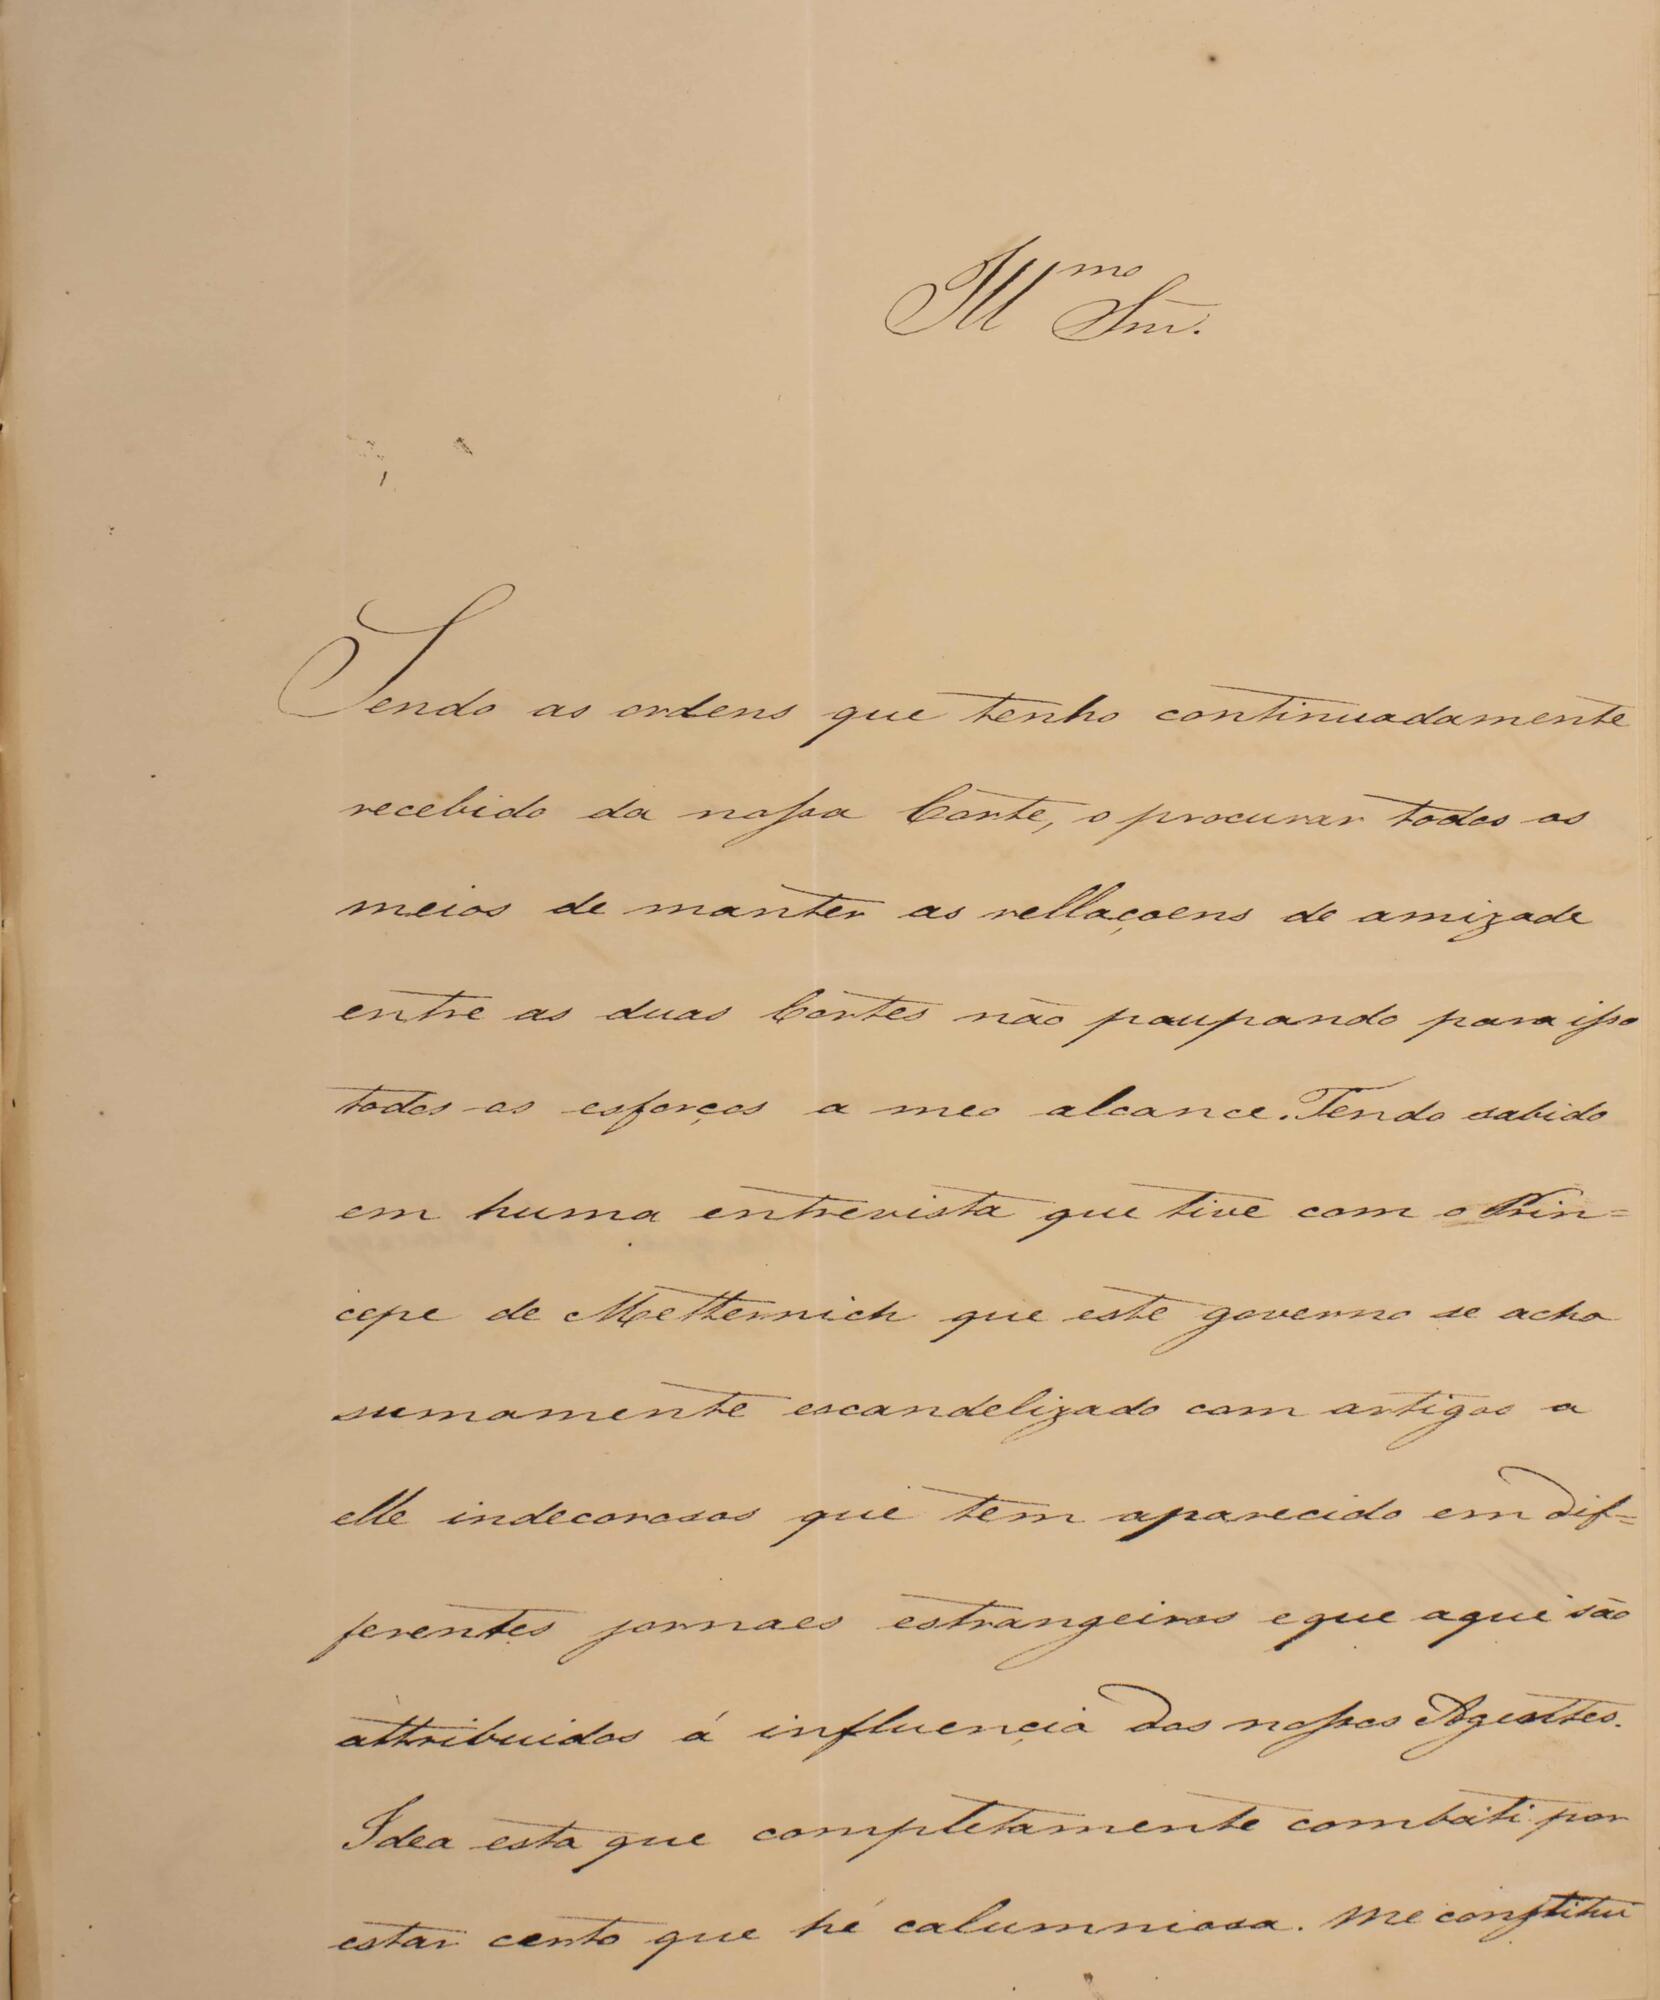 Illmo Snr.
Sendo as ordens que tenho continuadamente
recebido da nossa Corte, o procurar todos os
meios de manter as rellaçoens de amizade
entre as duas Cortes não poupando para isso
todos os esforços a meo alcance. Tendo sabido
em huma entrevista que tive com o Prin=
cepe de Metternich que este governo se acha
sumamente escandelizado com artigos a
elle indecorosos que tem aparecido em dif=
ferentes jornaes estrangeiros e que aqui são
attribuidos á influencia dos nossos Agentes.
Idea esta que completamente combati por
estar certo que hé calumniosa. Me constitui